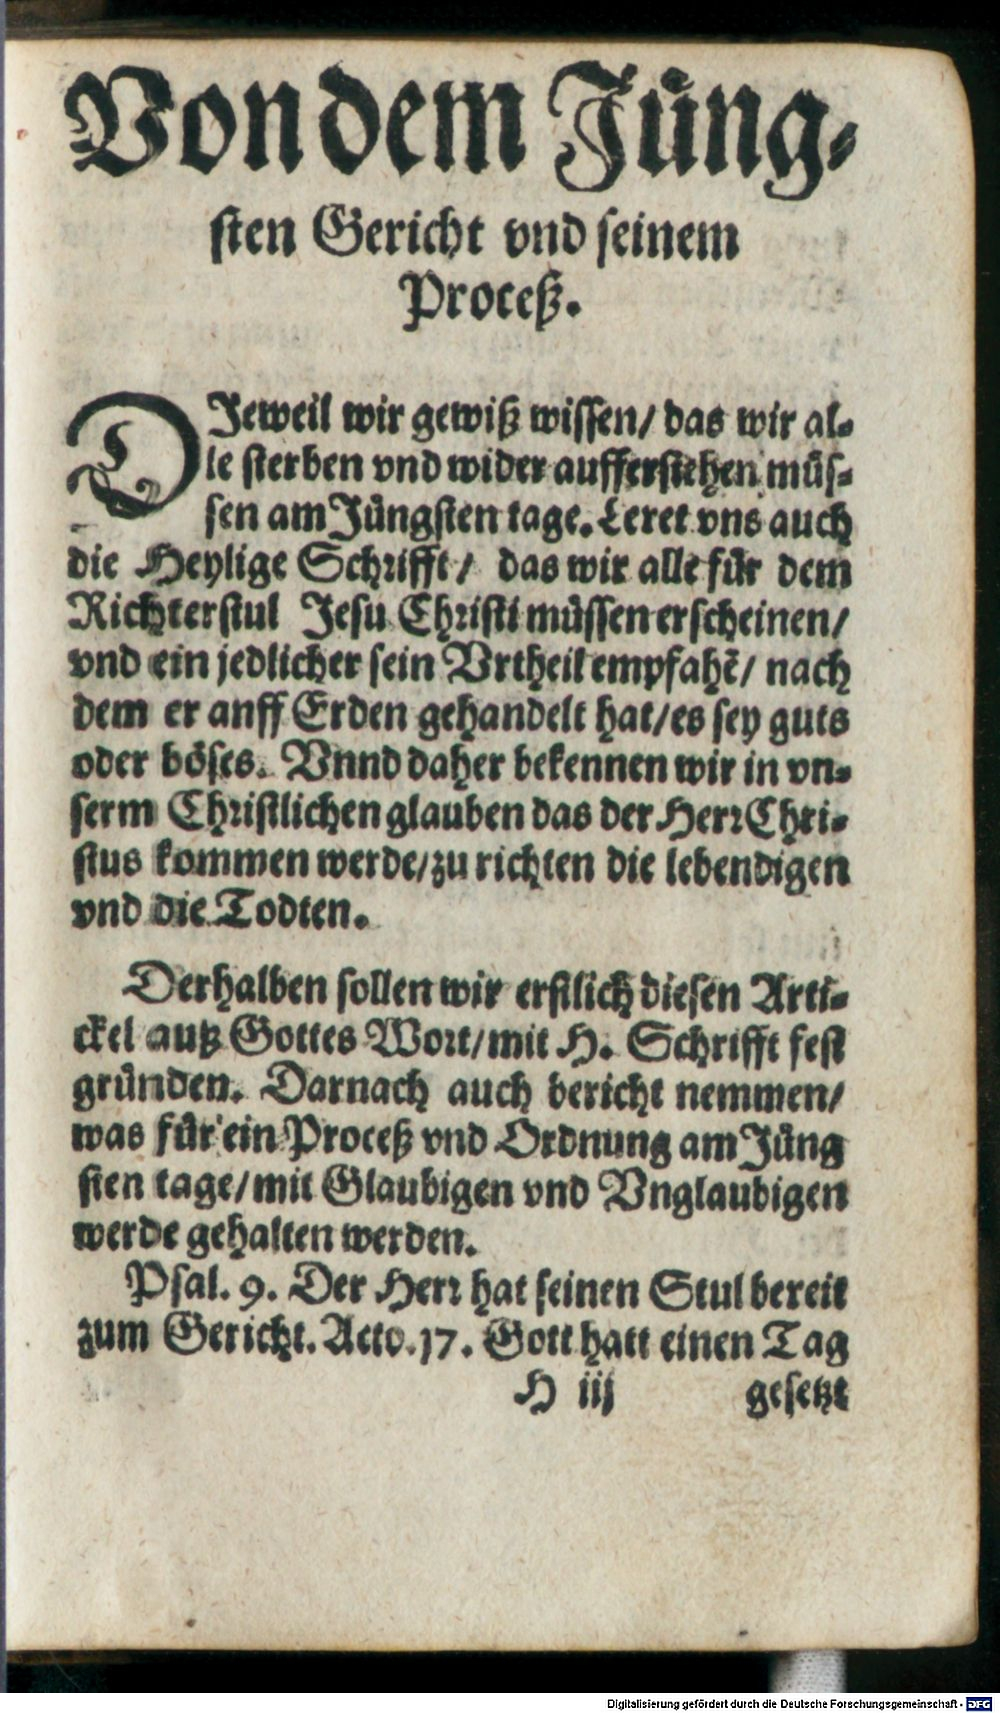 Von dem Jüng⸗
sten Gericht vnd seinem
Proceß.
DJeweil wir gewiß wissen/ das wir al⸗
le sterben vnd wider aufferstehen müs⸗
sen am Jüngsten tage. Leret vns auch
die Heylige Schrifft/ das wir alle für dem
Richterstul Jesu Christi müssen erscheinen/
vnd ein jedlicher sein Vrtheil empfahẽ/ nach
dem er anff Erden gehandelt hat/ es sey guts
oder böses. Vnnd daher bekennen wir in vn⸗
serm Christlichen glauben das der Herr Chri⸗
stus kommen werde/ zu richten die lebendigen
vnd die Todten.
Derhalben sollen wir erstlich diesen Arti⸗
ckel auß Gottes Wort/ mit H. Schrifft fest
gründen. Darnach auch bericht nemmen/
was für ein Proceß vnd Ordnung am Jüng
sten tage/ mit Glaubigen vnd Vnglaubigen
werde gehalten werden.
Psal. 9. Der Herr hat seinen Stul bereit
zum Gericht. Acto. 17. Gott hatt einen Tag
H iij gesetzt
Digitalisierung gefördert durch die Deutsche Forschungsgemeinschaft - DFG